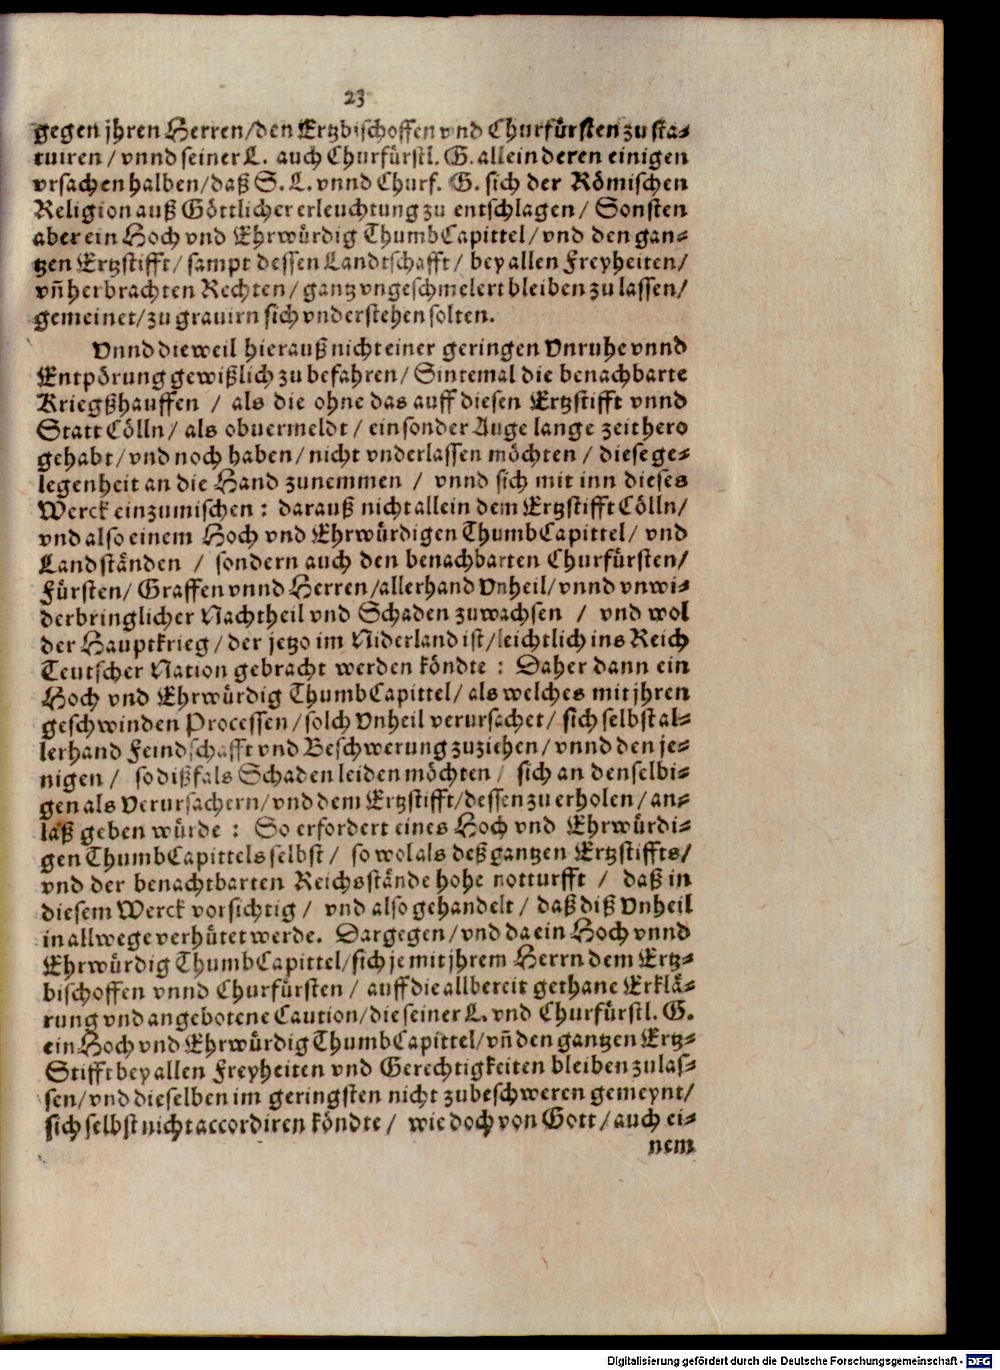 23
gegen jhren Herren/den Ertzbischoffen vnd Churfürsten zu sta-
tuiren / vnnd seiner L. auch Churfürstl. G. allein deren einigen
vrsachen halben/daß S. L. vnnd Churf. G. sich der Römischen
Religion auß Göttlicher erleuchtung zu entschlagen/ Sonsten
aber ein Hoch vnd Ehrwürdig ThumbCapittel/ vnd den gan-
tzen Ertzstifft/ sampt dessen Landtschafft/ bey allen Freyheiten/
vñ herbrachten Rechten/ gantz vngeschmelert bleiben zu lassen/
gemeinet/ zu grauirn sich vnderstehen solten.
Vnnd dieweil hierauß nicht einer geringen Vnruhe vnnd
Entpörung gewißlich zu befahren/ Sintemal die benachbarte
Kriegßhauffen / als die ohne das auff diesen Ertzstifft vnnd
Statt Cölln/ als obuermeldt/ ein sonder Auge lange zeithero
gehabt/ vnd noch haben/ nicht vnderlassen möchten / diese ge-
legenheit an die Hand zunemmen / vnnd sich mit inn dieses
Werck einzumischen: darauß nicht allein dem Ertzstifft Cölln/
vnd also einem Hoch vnd Ehrwürdigen ThumbCapittel/ vnd
Landständen / sondern auch den benachbarten Churfürsten/
Fürsten/ Graffen vnnd Herren/allerhand Vnheil/ vnnd vnwi-
derbringlicher Nachtheil vnd Schaden zuwachsen / vnd wol
der Hauptkrieg/ der jetzo im Niderland ist/leichtlich ins Reich
Teutscher Nation gebracht werden köndte: Daher dann ein
Hoch vnd Ehrwürdig ThumbCapittel/ als welches mit jhren
geschwinden Processen/ solch Vnheil verursachet/ sich selbst al-
lerhand Feindschafft vnd Beschwerung zuziehen/ vnnd den je-
nigen / so dißfals Schaden leiden möchten/ sich an denselbi-
gen als Verursachern/ vnd dem Ertzstifft/dessen zu erholen/ an-
laß geben würde: So erfordert eines Hoch vnd Ehrwürdi-
gen ThumbCapittels selbst/ so wol als deß gantzen Ertzstiffts/
vnd der benachtbarten Reichsstände hohe notturfft / daß in
diesem Werck vorsichtig/ vnd also gehandelt/ daß diß Vnheil
in allwege verhütet werde. Dargegen/ vnd da ein Hoch vnnd
Ehrwürdig ThumbCapittel/sich je mit jhrem Herrn dem Ertz-
bischoffen vnnd Churfürsten/ auff die allbereit gethane Erklä-
rung vnd angebotene Caution/die seiner L. vnd Churfürstl. G.
ein Hoch vnd Ehrwürdig ThumbCapittel/vñ den gantzen Ertz-
Stifft bey allen Freyheiten vnd Gerechtigkeiten bleiben zulas-
sen/ vnd dieselben im geringsten nicht zubeschweren gemeynt/
sich selbst nicht accordiren köndte/ wie doch von Gott/ auch ei-
nem
Digitalisierung gefördert durch die Deutsche Forschungsgemeinschaft - DFG